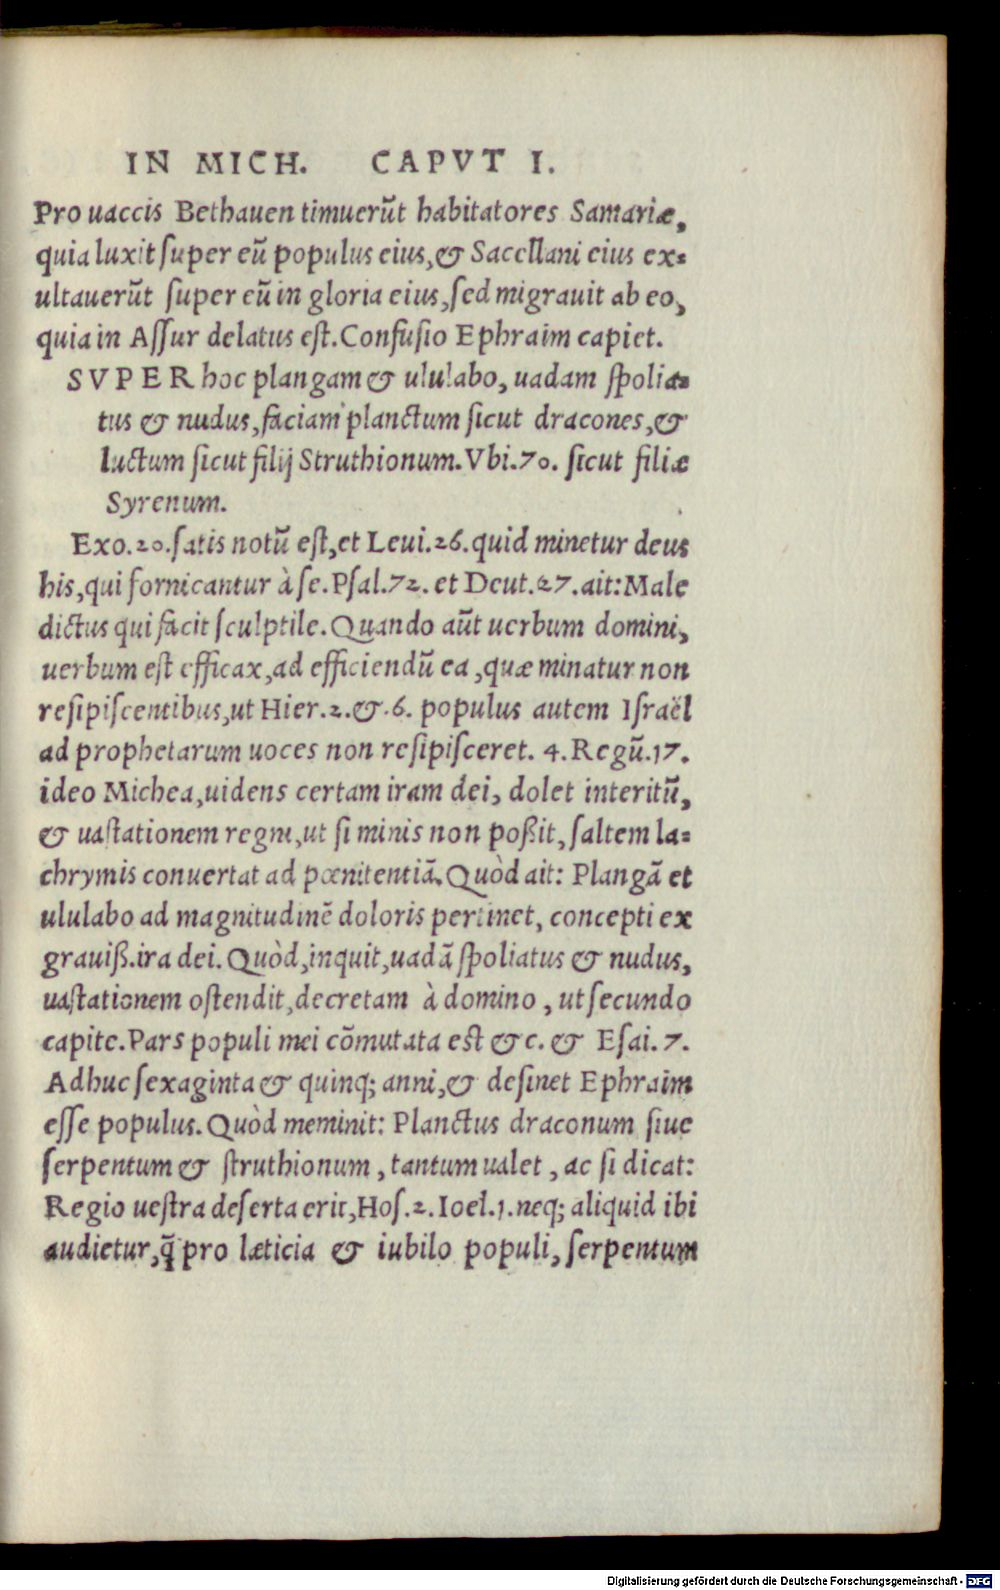 IN MICH. CAPVT I.
Pro uaccis Bethauen timuerũt habitatores Samariæ,
quia luxit ſuper eũ populus eius, & Sacellani eius ex-
ultauerũt ſuper eũ in gloria eius, ſed migrauit ab eo,
quia in Aſſur delatus eſt. Confuſio Ephraim capiet.
SVPER hoc plangam & ululabo, uadam ſpolia-
tus & nudus, faciam planctum ſicut dracones, &
luctum ſicut filij Struthionum. Vbi. 70. ſicut filiæ
Syrenum.
Exo. 20. ſatis notũ eſt, et Leui. 26. quid minetur deus
his, qui fornicantur à ſe. Pſal. 72. et Deut. 27. ait: Male
dictus qui facit ſculptile. Quando aũt uerbum domini,
uerbum eſt efficax, ad efficiendũ ea, quæ minatur non
reſipiſcentibus, ut Hier. 2. &. 6. populus autem Iſraël
ad prophetarum uoces non reſipiſceret. 4. Regũ. 17.
ideo Michea, uidens certam iram dei, dolet interitũ,
& uaſtationem regni, ut ſi minis non poßit, ſaltem la-
chrymis conuertat ad pœnitentiã. Quòd ait: Plangã et
ululabo ad magnitudinẽ doloris pertinet, concepti ex
grauiß. ira dei. Quòd, inquit, uadã ſpoliatus & nudus,
uaſtationem oſtendit, decretam à domino, ut ſecundo
capite. Pars populi mei cõmutata eſt &c. & Eſai. 7.
Adhuc ſexaginta & quinq; anni, & deſinet Ephraim
eſſe populus. Quòd meminit: Planctus draconum ſiue
ſerpentum & ſtruthionum, tantum ualet, ac ſi dicat:
Regio ueſtra deſerta erit, Hoſ. 2. Ioel. 1. neq; aliquid ibi
audietur, q̃ pro læticia & iubilo populi, ſerpentum
Digitalisierung gefördert durch die Deutsche Forschungsgemeinschaft - DFG